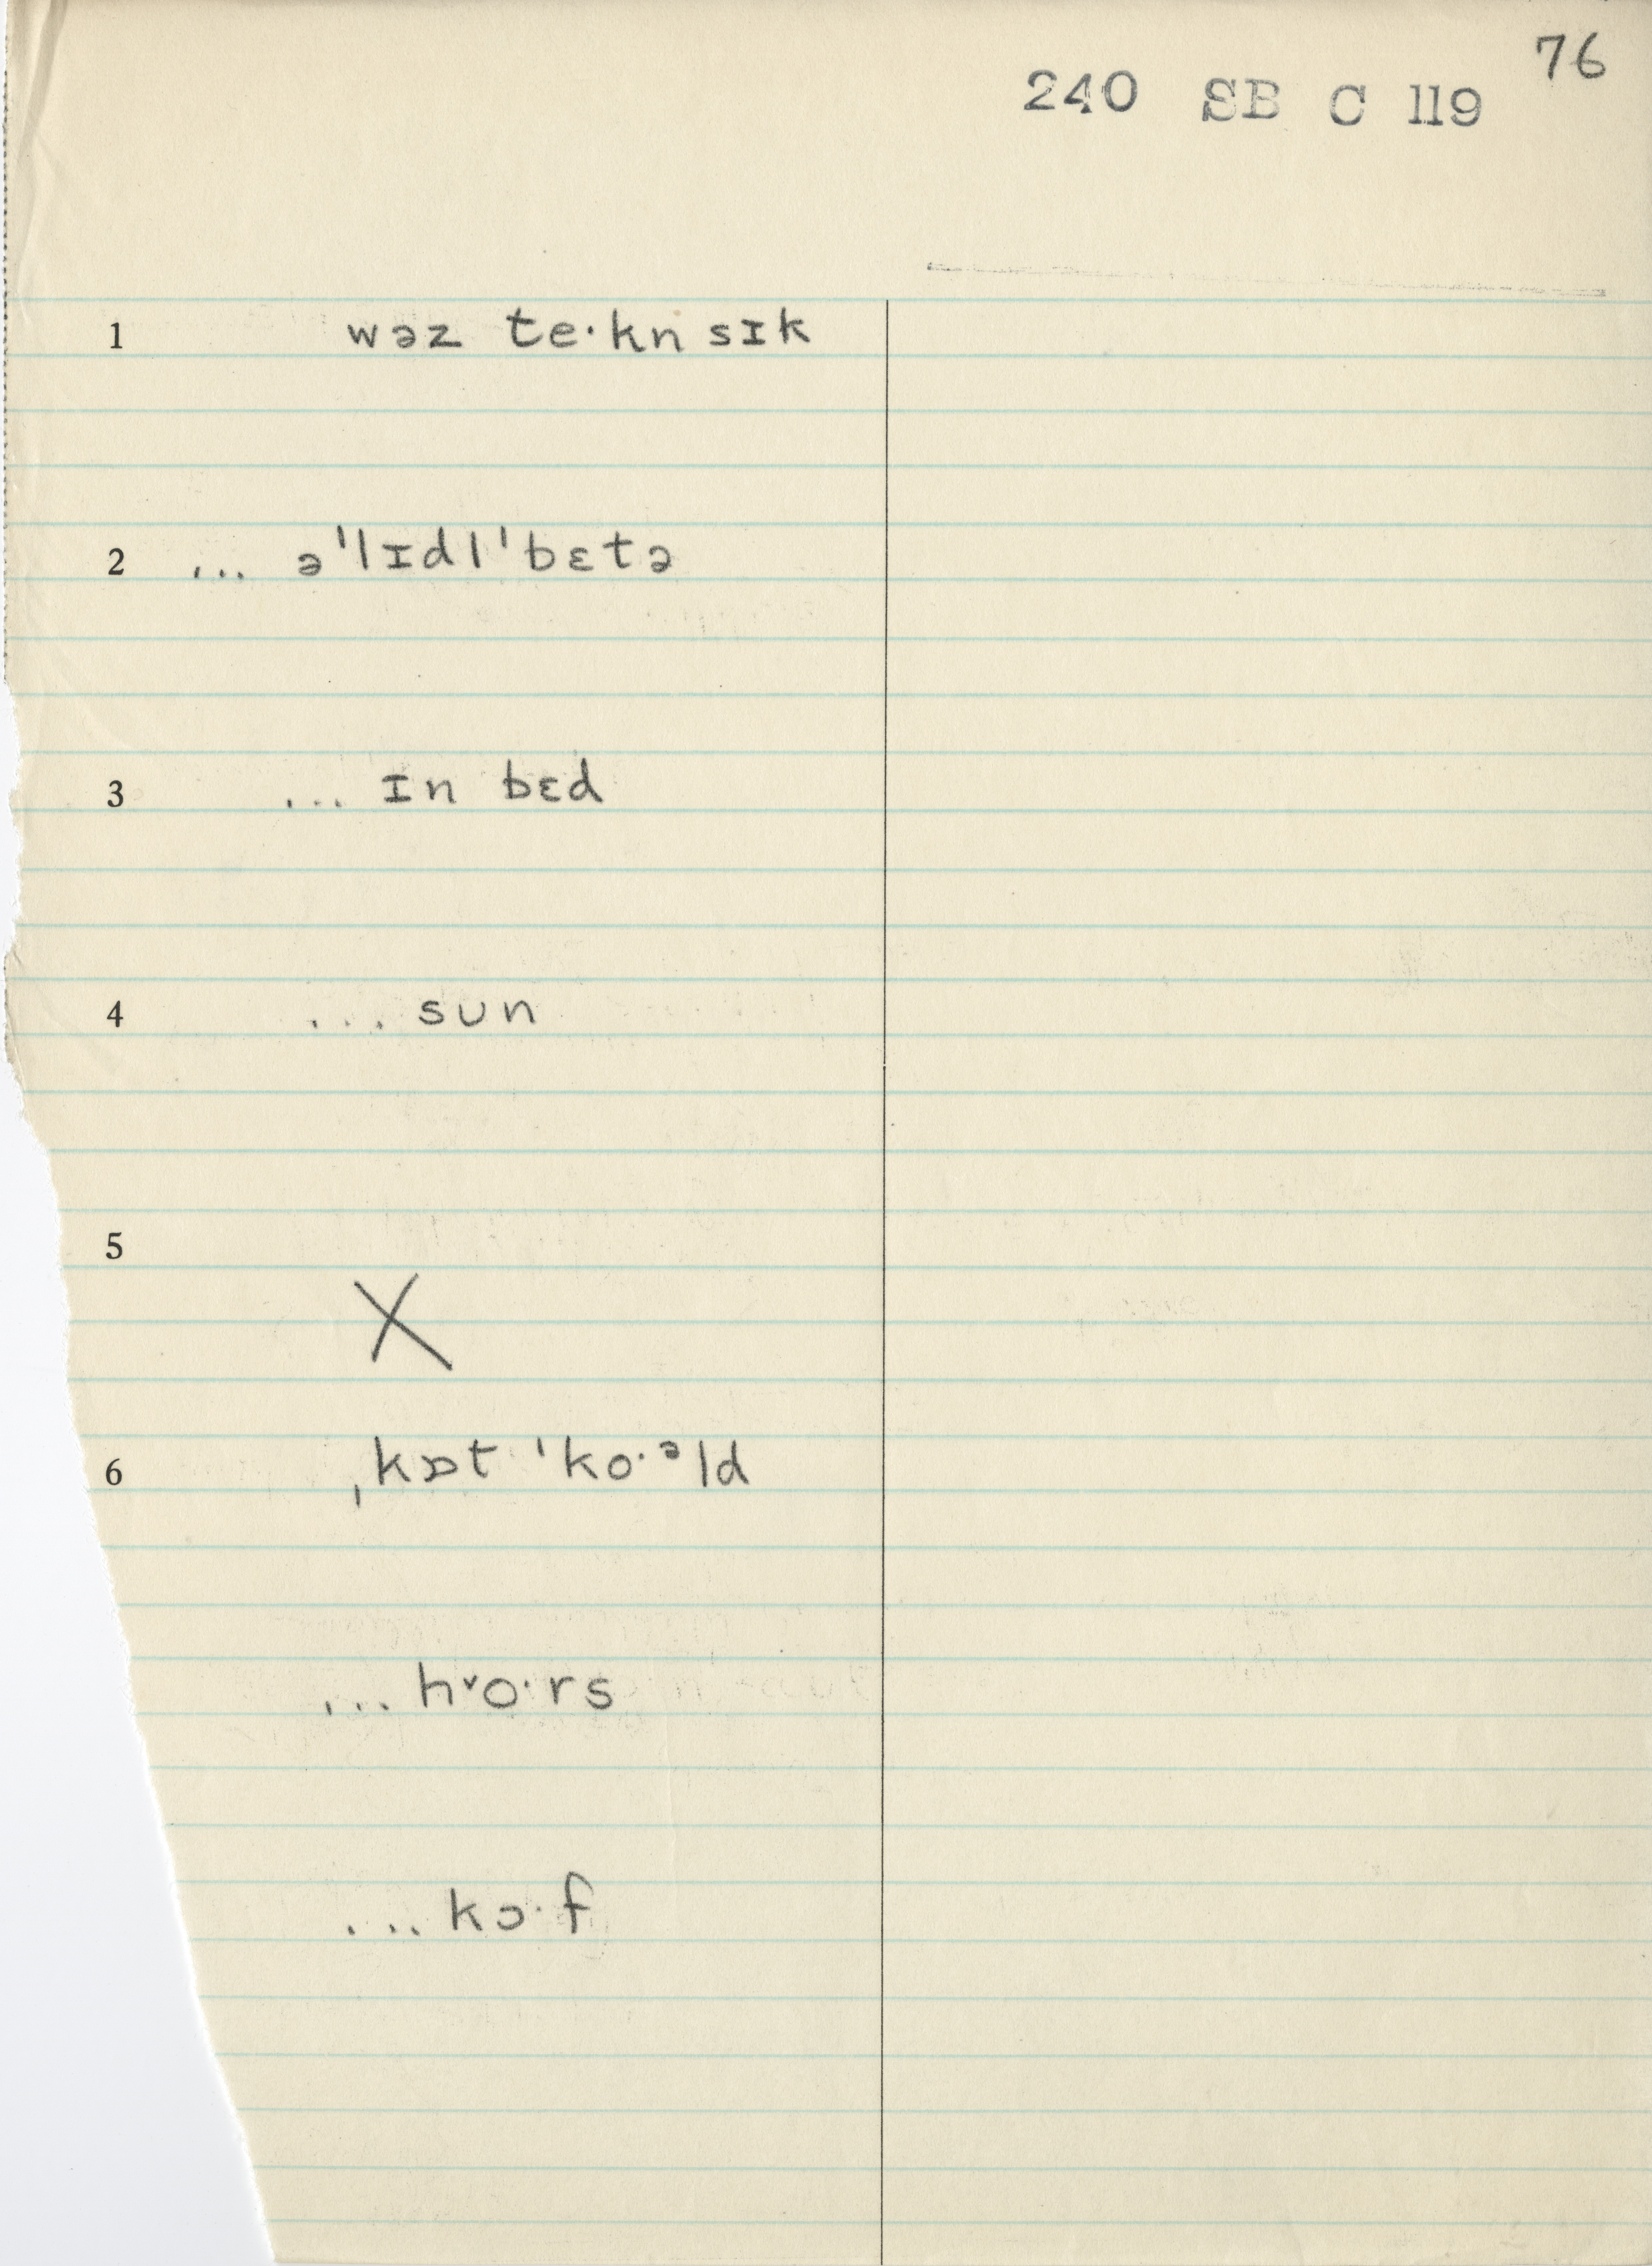 76
240 SB C 119
1 wəz te·kn sɪk
2 ... əˈlɪdlˈbɛtə
3 ... ɪn bɛd
4 ... sun
5
X
6 ˌkɒt ˈko·ᵊld
... h˅o·rs
... kɔ·f